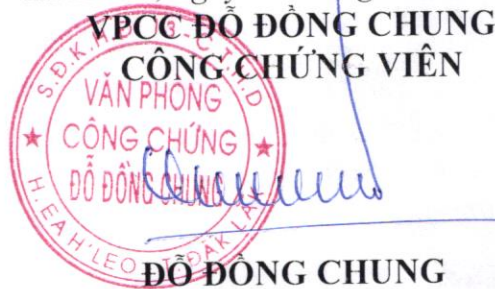 VPCC ĐỖ ĐỒNG CHUNG
CÔNG CHỨNG VIÊN
VĂN PHÒNG
CÔNG CHỨNG
ĐỖ ĐỒNG CHUNG
H.EAH'LEO
ĐỖ ĐỒNG CHUNG